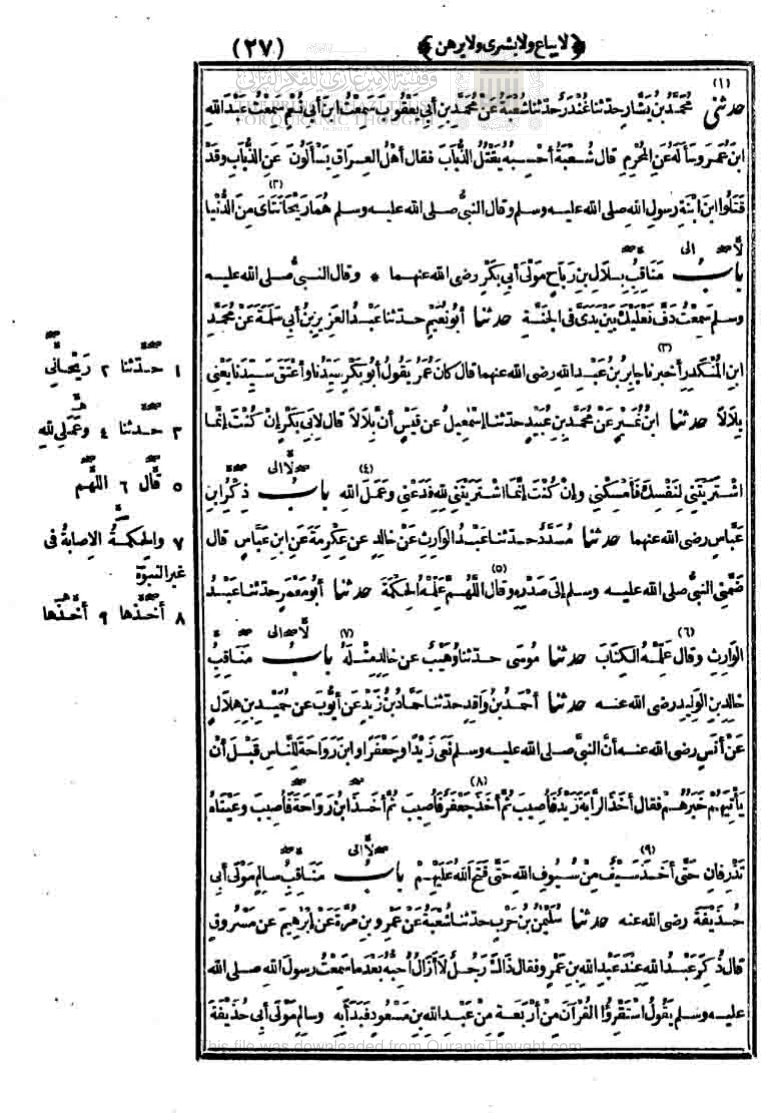 ﴿لا يباع ولا يشرى ولا يرهن﴾ (٢٧)
(١)
حدثني مُحَمَّدُ بْنُ بَشَّارٍ حدّثنا غُنْدَرٌ حدّثنا شُعْبَةُ عَنْ مُحَمَّدِ بْنِ أَبِي يَعْقُوبَ سَمِعْتُ ابْنَ أَبِي نُعْمٍ سَمِعْتُ عَبْدَ اللهِ
ابْنَ عُمَرَ وسَأَلَهُ عَنِ الْمُحْرِمِ قال شُعْبَةُ أَحْسِبُهُ يَقْتُلُ الذُّبَابَ فقال أَهْلُ العِرَاقِ يَسْأَلُونَ عَنِ الذُّبَابِ وقَدْ
قَتَلُوا ابْنَ ابْنَةِ رسولِ اللهِ صلى الله عليه وسلم وقال النبيُّ صلى الله عليه وسلم هُمَا رَيْحَانَتَايَ مِنَ الدُّنْيا
بابُ مَنَاقِبِ بِلَالِ بْنِ رَبَاحٍ مَوْلَى أَبِي بَكْرٍ رضي الله عنهما * وقال النبيُّ صلى الله عليه
وسلم سَمِعْتُ دَفَّ نَعْلَيْكَ بَيْنَ يَدَيَّ في الجَنَّةِ حدثنا أَبُو نُعَيْمٍ حدّثنا عَبْدُ العَزِيزِ بْنُ أَبِي سَلَمَةَ عَنْ مُحَمَّدِ
ابْنِ المُنْكَدِرِ أخبرنا جابِرُ بْنُ عَبْدِ الله رضي الله عنهما قال كانَ عُمَرُ يَقُولُ أَبُو بَكْرٍ سَيِّدُنا وأَعْتَقَ سَيِّدَنا يَعْنِي
بِلَالاً حدثنا ابْنُ نُمَيْرٍ عَنْ مُحَمَّدِ بْنِ عُبَيْدٍ حدّثنا إِسْمَعِيلُ عن قَيْسٍ أَنَّ بِلَالاً قال لِأَبِي بَكْرٍ إِنْ كُنْتَ إِنَّمَا
اشْتَرَيْتَنِي لِنَفْسِكَ فَأَمْسِكْنِي وإِنْ كُنْتَ إِنَّمَا اشْتَرَيْتَنِي لِلهِ فَدَعْنِي وعَمَلَ اللهِ بابُ ذِكْرُ ابنِ
عَبَّاسٍ رضي الله عنهما حدثنا مُسَدَّدٌ حدّثنا عَبْدُ الوَارِثِ عَنْ خالِدٍ عن عِكْرِمَةَ عَنِ ابنِ عَبَّاسٍ قال
ضَمَّنِي النبيُّ صلى الله عليه وسلم إلى صَدْرِهِ وقال اللَّهُمَّ عَلِّمْهُ الحِكْمَةَ حدثنا أَبُو مَعْمَرٍ حدّثنا عَبْدُ
الوَارِثِ وقال عَلِّمْهُ الكِتَابَ حدثنا مُوسَى حدّثنا وُهَيْبٌ عن خالِدٍ مِثْلَهُ بابُ مَنَاقِبِ
خالِدِ بْنِ الوَلِيدِ رضي الله عنه حدثنا أَحْمَدُ بْنُ وَاقِدٍ حدّثنا حَمَّادُ بْنُ زَيْدٍ عَنْ أَيُّوبَ عن حُمَيْدِ بنِ هِلَالٍ
عَنْ أَنَسٍ رضي الله عنه أَنَّ النبيَّ صلى الله عليه وسلم نَعَى زَيْدًا وجَعْفَرًا وابْنَ رَوَاحَةَ لِلنَّاسِ قَبْلَ أَنْ
يَأْتِيَهُمْ خَبَرُهُمْ فقال أَخَذَ الرَّايَةَ زَيْدٌ فَأُصِيبَ ثُمَّ أَخَذَ جَعْفَرٌ فَأُصِيبَ ثُمَّ أَخَذَ ابْنُ رَوَاحَةَ فَأُصِيبَ وعَيْنَاهُ
تَذْرِفانِ حَتَّى أَخَذَ سَيْفٌ مِنْ سُيُوفِ اللهِ حَتَّى فَتَحَ اللهُ عَلَيْهِمْ بابُ مَنَاقِبِ سالِمٍ مَوْلَى أَبِي
حُذَيْفَةَ رضي الله عنه حدثنا سُلَيْمَنُ بْنُ حَرْبٍ حدّثنا شُعْبَةُ عَنْ عَمْرِو بنِ مُرَّةَ عَنْ إِبْرَهِيمَ عن مَسْرُوقٍ
قال ذُكِرَ عَبْدُ اللهِ عِنْدَ عَبْدِ اللهِ بنِ عَمْرٍو فقال ذَاكَ رَجُلٌ لَا أَزَالُ أُحِبُّهُ بَعْدَ ما سَمِعْتُ رسولَ اللهِ صلى الله
عليه وسلم يَقُولُ اسْتَقْرِؤُا القُرْآنَ مِنْ أَرْبَعَةٍ مِنْ عَبْدِ اللهِ بنِ مَسْعُودٍ فَبَدَأَ بِهِ وسالِمٍ مَوْلَى أَبِي حُذَيْفَةَ
١ حدّثنا ٢ رَيْحَانِي
٣ حدثنا ٤ وعَمَلِي للهِ
٥ قَالَ ٦ اللَّهُمَّ
٧ والحِكْمَةُ الإصابةُ في
غير النبوّة
٨ أَخَذَها ٩ أَخَذَها
THE PRINCE GHAZI TRUST
FOR QURANIC THOUGHT
This file was downloaded from QuranicThought.com